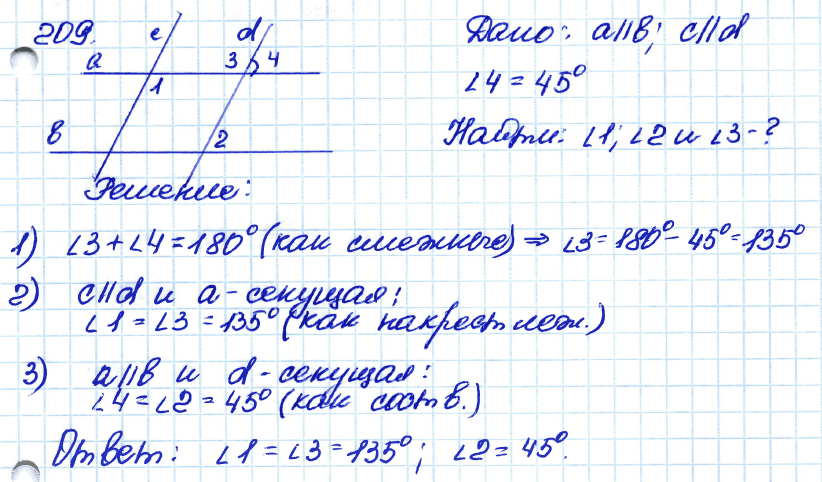 209.
c
d
a
3
4
1
b
2
Дано: a∥b; c∥d
∠4 = 45°
Найти: ∠1; ∠2 и ∠3 - ?
Решение:
1) ∠3 + ∠4 = 180° (как смежные) ⇒ ∠3 = 180° - 45° = 135°
2) c∥d и a - секущая:
∠1 = ∠3 = 135° (как накрест леж.)
3) a∥b и d - секущая:
∠4 = ∠2 = 45° (как соотв.)
Ответ: ∠1 = ∠3 = 135°; ∠2 = 45°.